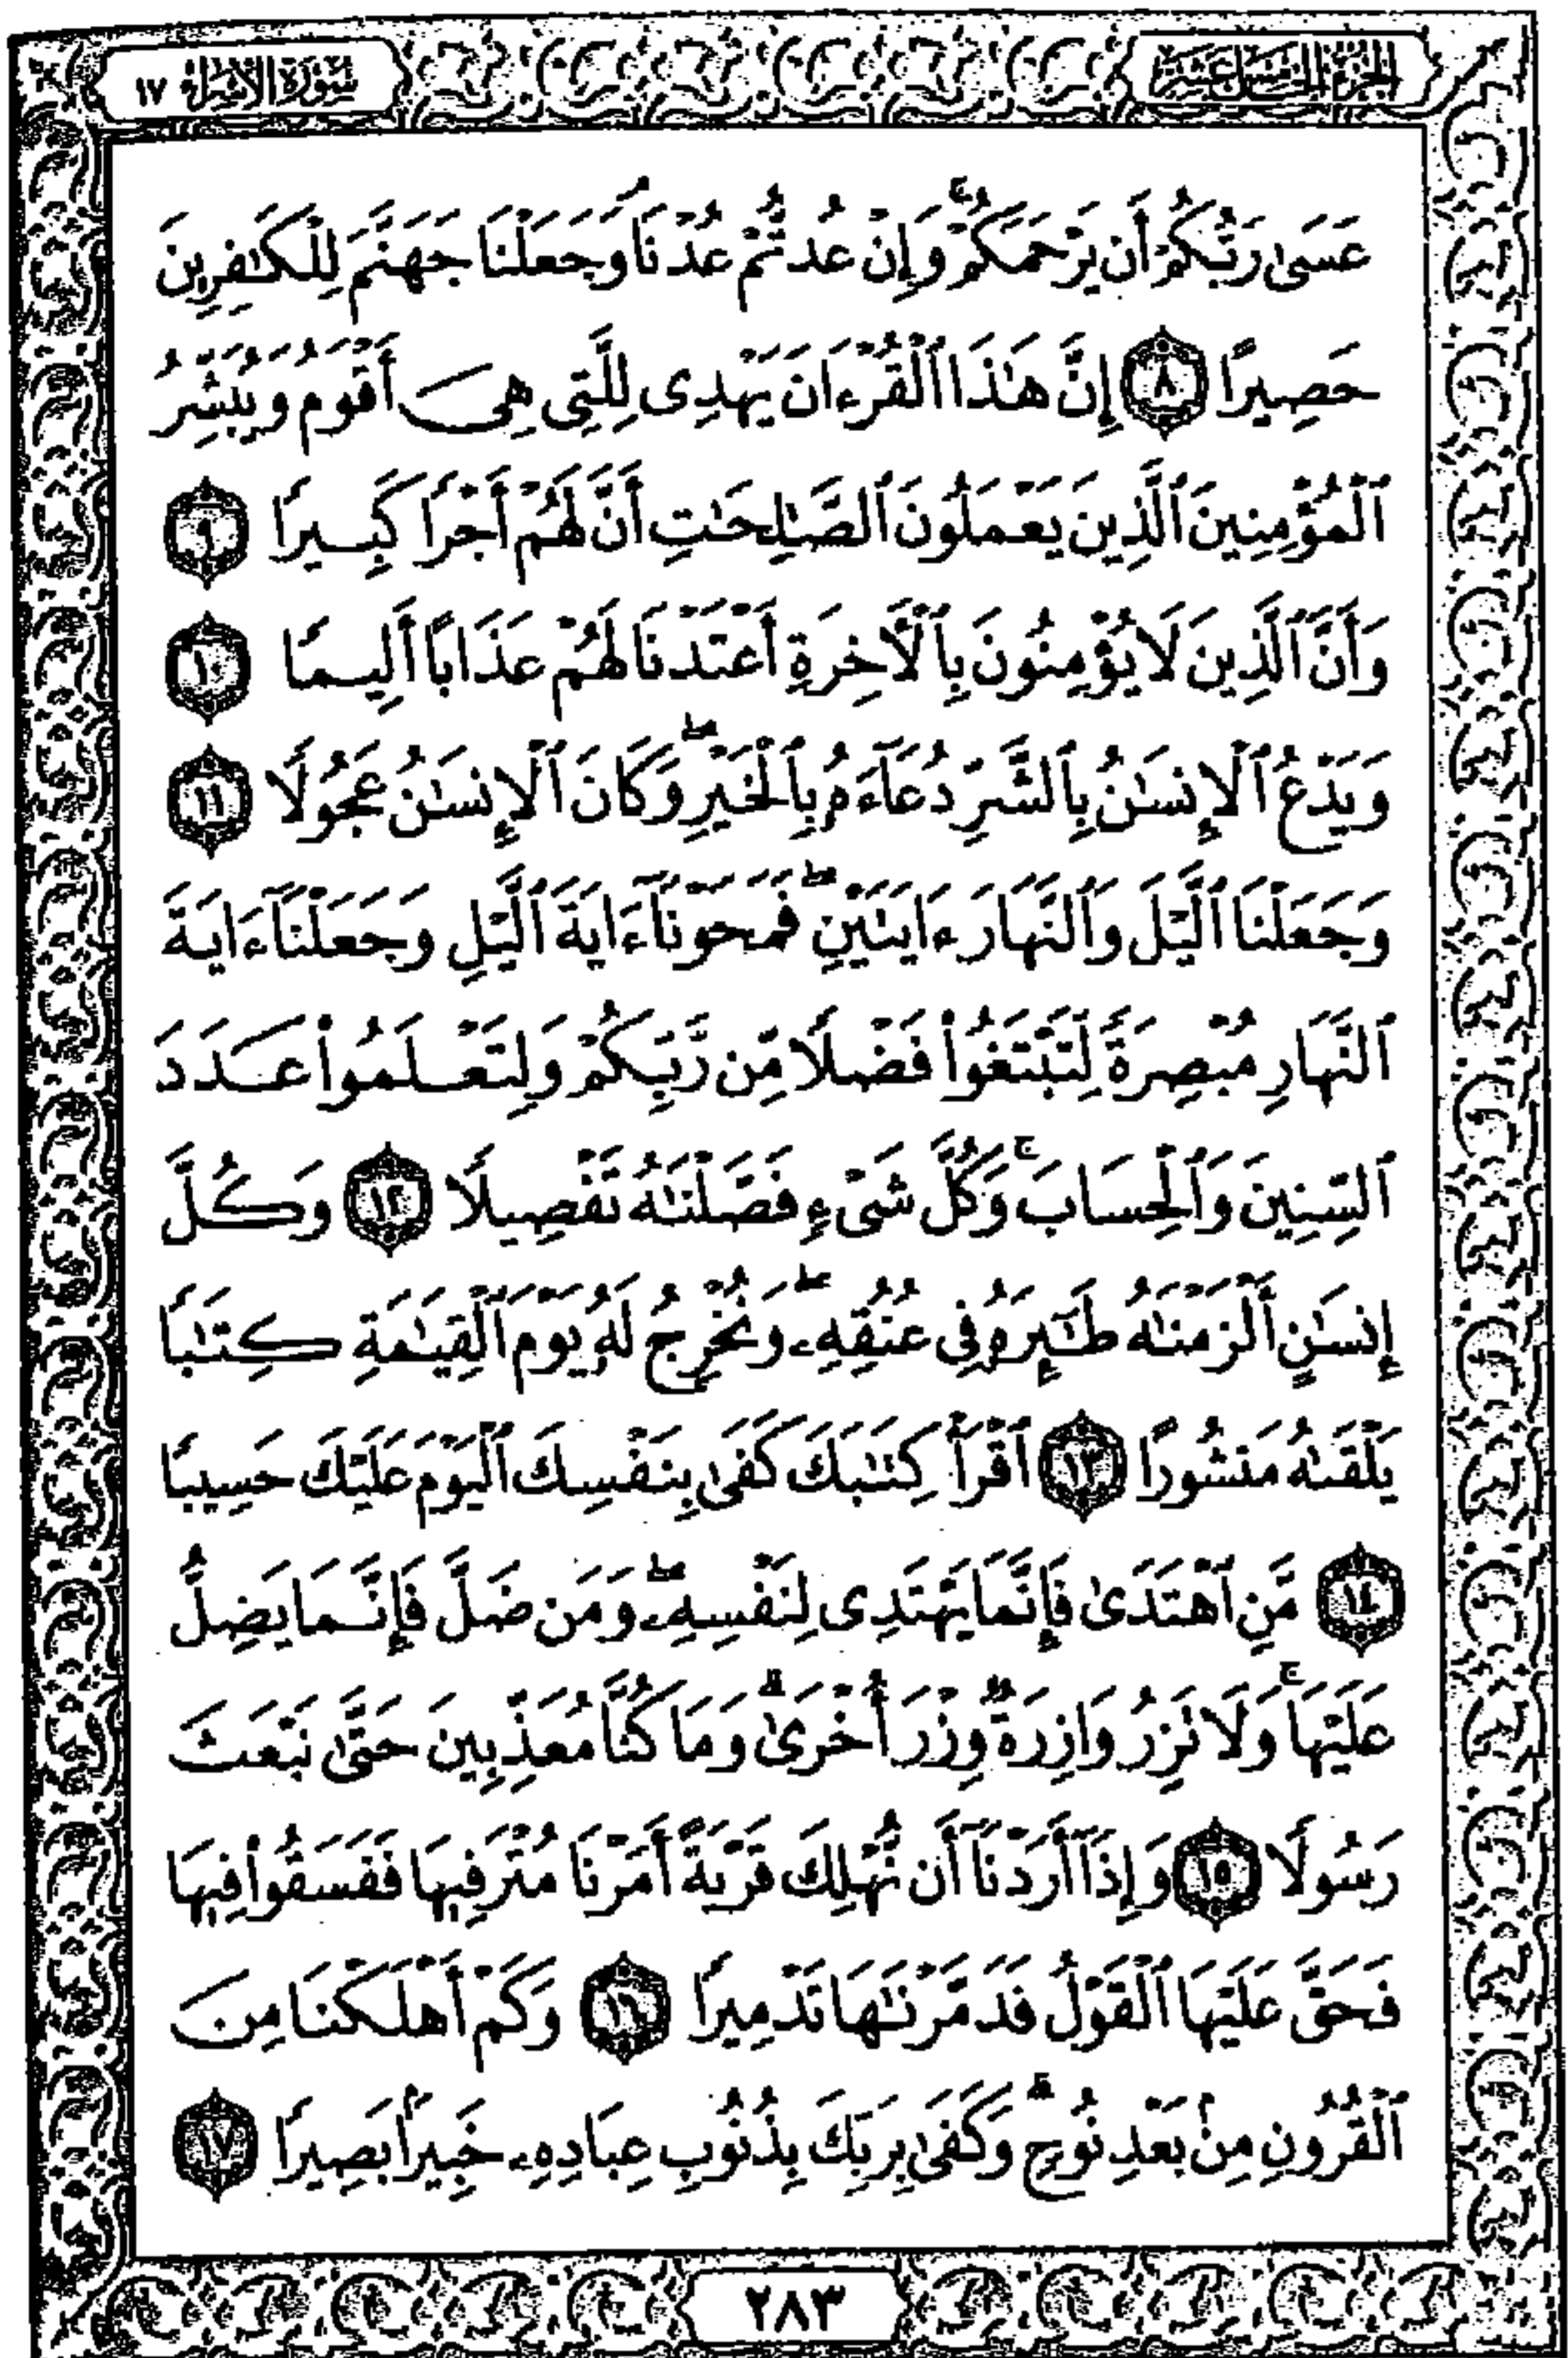 الجزء الخامس عشر
سورة الإسراء ١٧
عَسَىٰ رَبُّكُمْ أَن يَرْحَمَكُمْ ۚ وَإِنْ عُدتُّمْ عُدْنَا ۘ وَجَعَلْنَا جَهَنَّمَ لِلْكَٰفِرِينَ
حَصِيرًا ٨ إِنَّ هَٰذَا ٱلْقُرْءَانَ يَهْدِى لِلَّتِى هِىَ أَقْوَمُ وَيُبَشِّرُ
ٱلْمُؤْمِنِينَ ٱلَّذِينَ يَعْمَلُونَ ٱلصَّٰلِحَٰتِ أَنَّ لَهُمْ أَجْرًا كَبِيرًا ٩
وَأَنَّ ٱلَّذِينَ لَا يُؤْمِنُونَ بِٱلْأَخِرَةِ أَعْتَدْنَا لَهُمْ عَذَابًا أَلِيمًا ١٠
وَيَدْعُ ٱلْإِنسَٰنُ بِٱلشَّرِّ دُعَآءَهُۥ بِٱلْخَيْرِ ۖ وَكَانَ ٱلْإِنسَٰنُ عَجُولًا ١١
وَجَعَلْنَا ٱلَّيْلَ وَٱلنَّهَارَ ءَايَتَيْنِ ۖ فَمَحَوْنَآ ءَايَةَ ٱلَّيْلِ وَجَعَلْنَآ ءَايَةَ
ٱلنَّهَارِ مُبْصِرَةً لِّتَبْتَغُوا۟ فَضْلًا مِّن رَّبِّكُمْ وَلِتَعْلَمُوا۟ عَدَدَ
ٱلسِّنِينَ وَٱلْحِسَابَ ۚ وَكُلَّ شَىْءٍ فَصَّلْنَٰهُ تَفْصِيلًا ١٢ وَكُلَّ
إِنسَٰنٍ أَلْزَمْنَٰهُ طَٰٓئِرَهُۥ فِى عُنُقِهِۦ ۖ وَنُخْرِجُ لَهُۥ يَوْمَ ٱلْقِيَٰمَةِ كِتَٰبًا
يَلْقَىٰهُ مَنشُورًا ١٣ ٱقْرَأْ كِتَٰبَكَ كَفَىٰ بِنَفْسِكَ ٱلْيَوْمَ عَلَيْكَ حَسِيبًا
١٤ مَّنِ ٱهْتَدَىٰ فَإِنَّمَا يَهْتَدِى لِنَفْسِهِۦ ۖ وَمَن ضَلَّ فَإِنَّمَا يَضِلُّ
عَلَيْهَا ۚ وَلَا تَزِرُ وَازِرَةٌ وِزْرَ أُخْرَىٰ ۗ وَمَا كُنَّا مُعَذِّبِينَ حَتَّىٰ نَبْعَثَ
رَسُولًا ١٥ وَإِذَآ أَرَدْنَآ أَن نُّهْلِكَ قَرْيَةً أَمَرْنَا مُتْرَفِيهَا فَفَسَقُوا۟ فِيهَا
فَحَقَّ عَلَيْهَا ٱلْقَوْلُ فَدَمَّرْنَٰهَا تَدْمِيرًا ١٦ وَكَمْ أَهْلَكْنَا مِنَ
ٱلْقُرُونِ مِنۢ بَعْدِ نُوحٍ ۗ وَكَفَىٰ بِرَبِّكَ بِذُنُوبِ عِبَادِهِۦ خَبِيرًۢا بَصِيرًا ١٧
٢٨٣